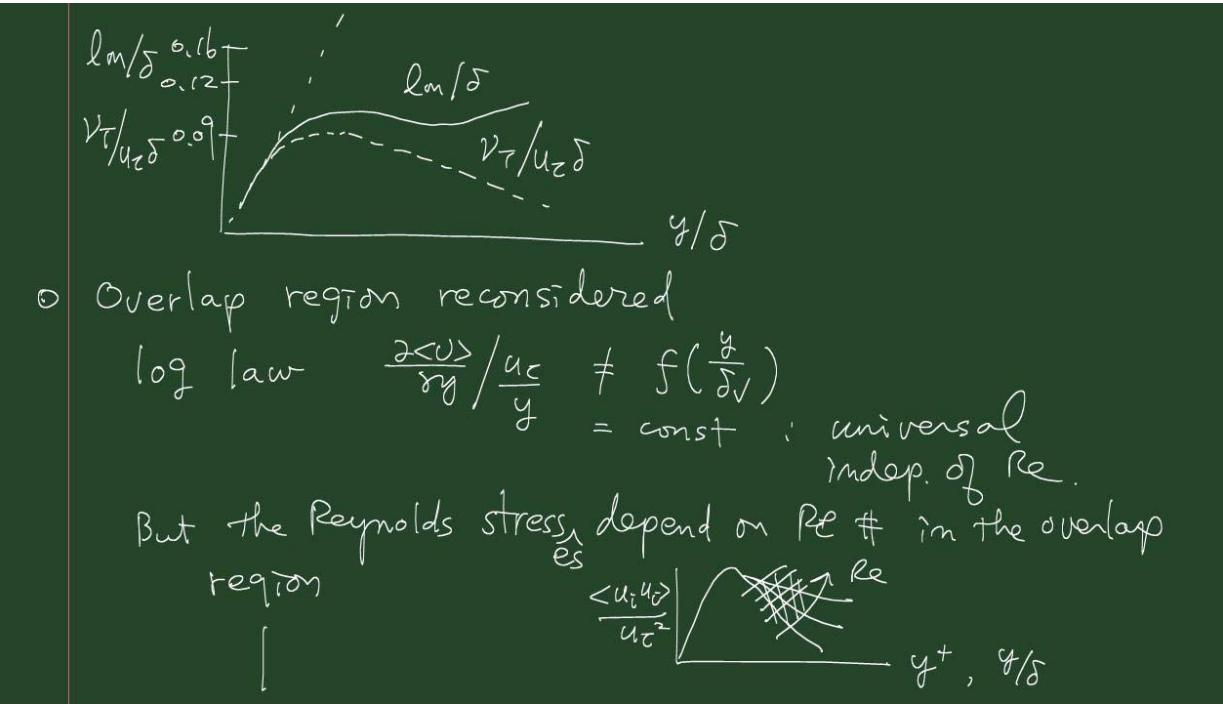 lm/δ 0.16
0.12
lm/δ
ν_T/u_τδ 0.09
ν_T/u_τδ
y/δ
Overlap region reconsidered
log law ∂<U>/∂y / u_τ/y ≠ f(y/δ_ν)
= const : universal
indep. of Re.
But the Reynolds stresses depend on Re # in the overlap
region
<u_i u_j>/u_τ² Re
y⁺, y/δ